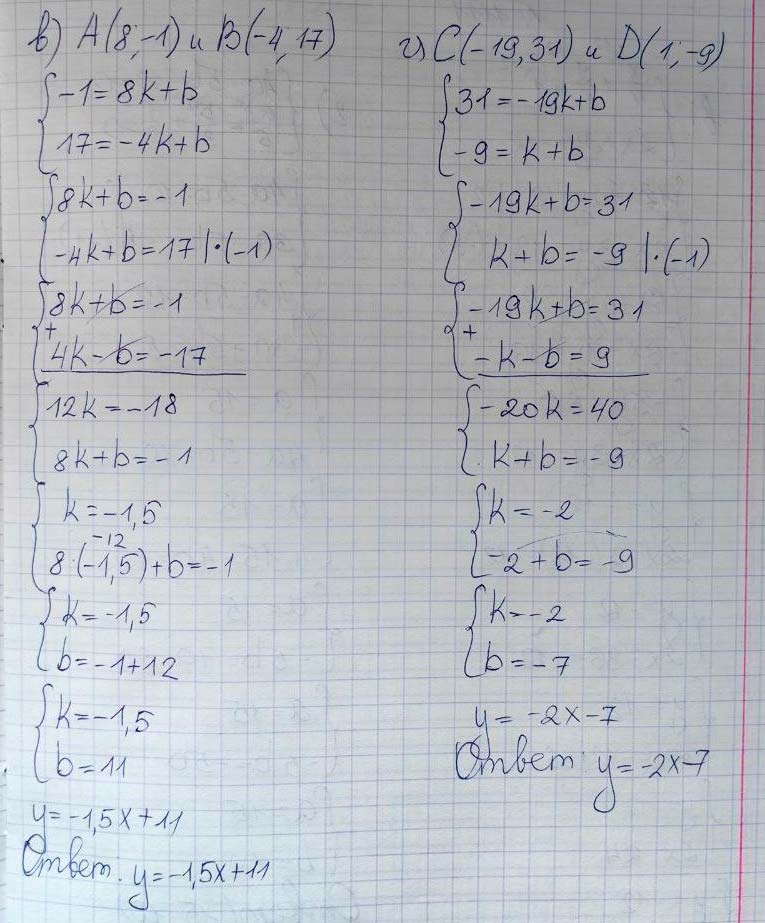 в) A(8;-1) и B(-4;17)
{-1=8k+b
17=-4k+b
{8k+b=-1
-4k+b=17 |·(-1)
{8k+b=-1
+
4k-b=-17
{12k=-18
8k+b=-1
{k=-1,5
-12
8·(-1,5)+b=-1
{k=-1,5
b=-1+12
{k=-1,5
b=11
y=-1,5x+11
Ответ: y=-1,5x+11
г) C(-19;31) и D(1;-9)
{31=-19k+b
-9=k+b
{-19k+b=31
k+b=-9 |·(-1)
{-19k+b=31
+
-k-b=9
{-20k=40
k+b=-9
{k=-2
-2+b=-9
{k=-2
b=-7
y=-2x-7
Ответ: y=-2x-7